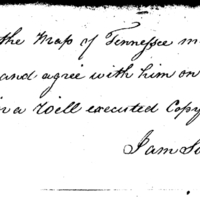 the Map of Tennessee m
and agree with him on
a Well executed Copy
I am